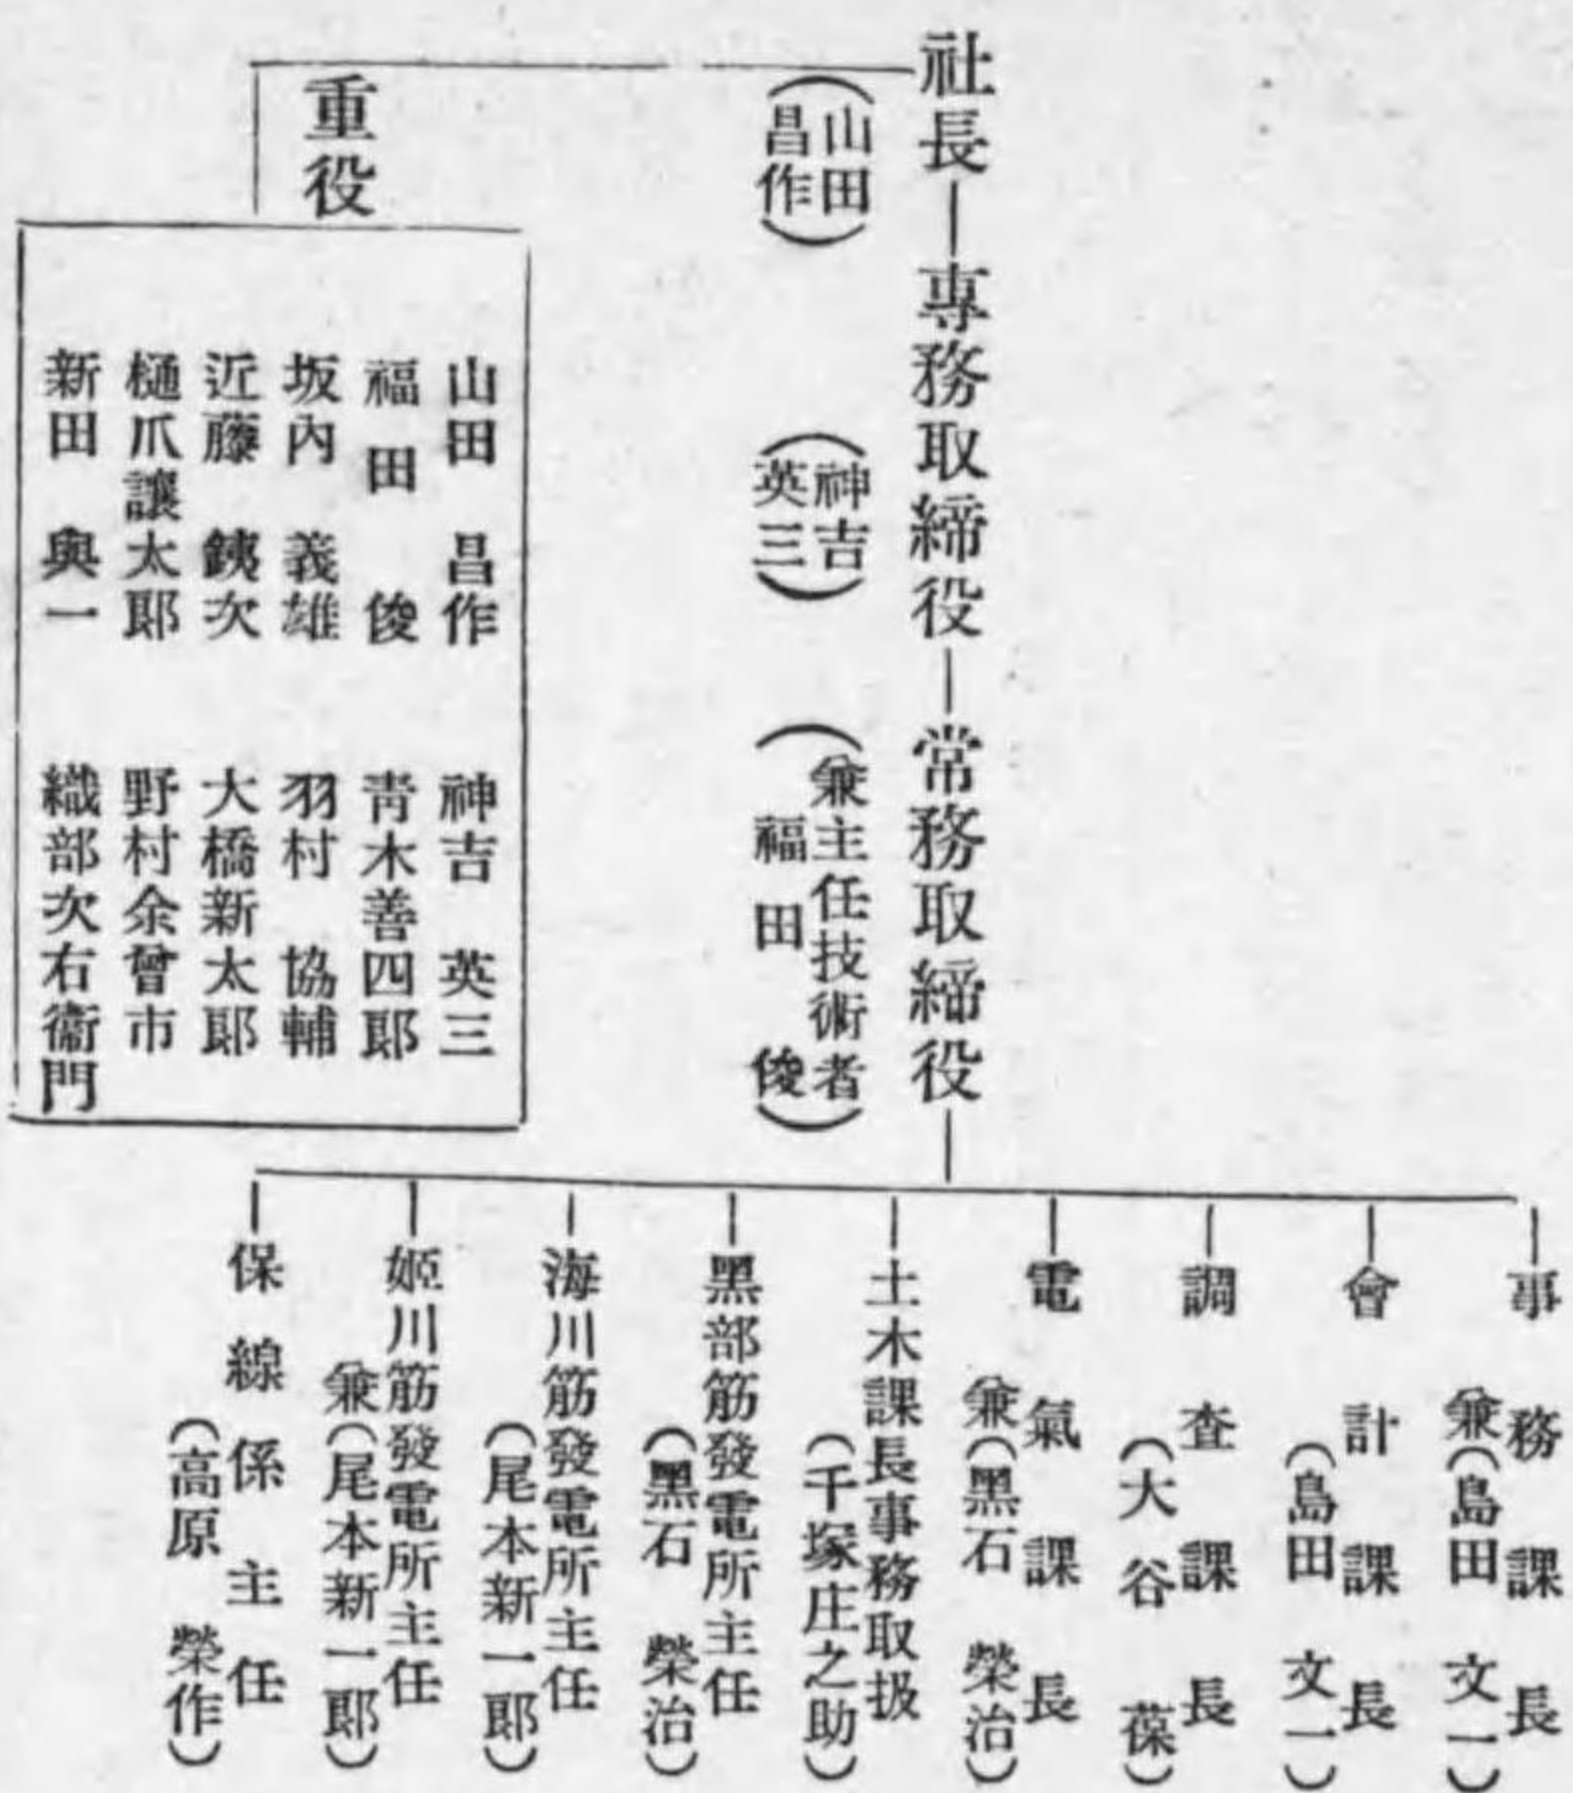 社長―專務取締役―常務取締役―
(山田
昌作)
(神吉
英三)
(兼主任技術者
福田 俊)
事務課長
兼(島田 文一)
會計課長
(島田 文一)
調査課長
(大谷 葆)
電氣課長
兼(黑石 榮治)
土木課長事務取扱
(千塚庄之助)
黑部筋發電所主任
(黑石 榮治)
海川筋發電所主任
(尾本新一郞)
姬川筋發電所主任
兼(尾本新一郞)
保線係主任
(高原 榮作)
重役
山田 昌作 神吉 英三
福田 俊 靑木善四郞
坂內 義雄 羽村 協輔
近藤 銕次 大橋新太郞
樋爪讓太郞 野村余曾市
新田 與一 織部次右衞門